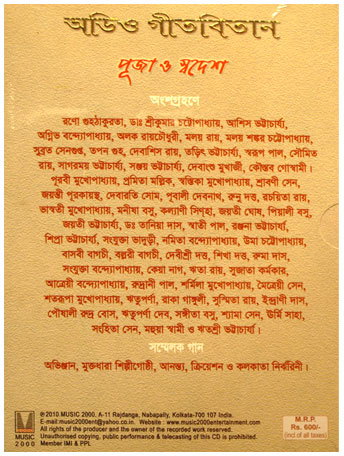 অডিও গীতবিতান
পূজা ও স্বদেশ
অংশগ্রহণে
রণো গুহঠাকুরতা, ডাঃ শ্রীকুমার চট্টোপাধ্যায়, আশিস ভট্টাচার্য্য,
অগ্নিভ বন্দ্যোপাধ্যায়, অলক রায়চৌধুরী, মলয় রায়, মলয় শঙ্কর চট্টোপাধ্যায়,
সুব্রত সেনগুপ্ত, তপন গুহ, দেবাশিস রায়, তড়িৎ ভট্টাচার্য্য, স্বরূপ পাল, সৌমিত
রায়, সাগরময় ভট্টাচার্য্য, সঞ্জয় ভট্টাচার্য্য, দেবাংশু মুখার্জী, কৌস্তভ গোস্বামী।
পূরবী মুখোপাধ্যায়, প্রমিতা মল্লিক, স্বস্তিকা মুখোপাধ্যায়, শ্রাবণী সেন,
জয়ন্তী পুরকায়স্থ, দেবারতি সোম, পূবালী দেবনাথ, রুনু দত্ত, রচয়িতা রায়,
ভাস্বতী মুখোপাধ্যায়, মনীষা বসু, কল্যাণী সিণ্হা, জয়তী ঘোষ, পিয়ালী বসু,
জয়তী ভট্টাচার্য্য, ডঃ তানিয়া দাস, স্বাতী পাল, রঞ্জনা ভট্টাচার্য্য,
শিপ্রা ভট্টাচার্য্য, সংযুক্তা ভাদুড়ী, নমিতা বন্দ্যোপাধ্যায়, উমা চট্টোপাধ্যায়,
বাসবী বাগচী, বল্লরী বাগচী, দেবীশ্রী দত্ত, শিখা দত্ত, রুমা দাস,
সংযুক্তা বন্দ্যোপাধ্যায়, কেয়া নাগ, ঋতা রায়, সুজাতা কর্মকার,
আত্রেয়ী বন্দ্যোপাধ্যায়, রুদ্রানী পাল, শর্মিলা মুখোপাধ্যায়, মৈত্রেয়ী সেন,
শতরূপা মুখোপাধ্যায়, ঋতুপর্ণা, রাকা গাঙ্গুলী, সুস্মিতা রায়, ইন্দ্রাণী দাস,
পৌষালী রুদ্র বোস, ঋতুপর্ণা দেব, সঙ্গীতা বসু, শ্যামা সেন, ঊর্মি সাহা,
সংহিতা সেন, মহুয়া স্বামী ও ঋতশ্রী ভট্টাচার্য্য।
সম্মেলক গান
অভিজ্ঞান, মুক্তধারা শিল্পীগোষ্ঠী, আনন্ত্য, ক্রিয়েশন ও কলকাতা নির্ঝরিনী।
℗ 2010. MUSIC 2000. A-11 Rajdanga, Nabapally, Kolkata-700 107 India.
E-mail: music2000ent@yahoo.co.in. Website : www.music2000entertainment.com
All rights of the producer and the owner of the recorded work reserved.
Unauthorised copying, public performance & telecasting of this CD is prohibited.
Member IMI & PPL
MUSIC
2000
M.R.P.
Rs. 600/-
(incl of all taxes)